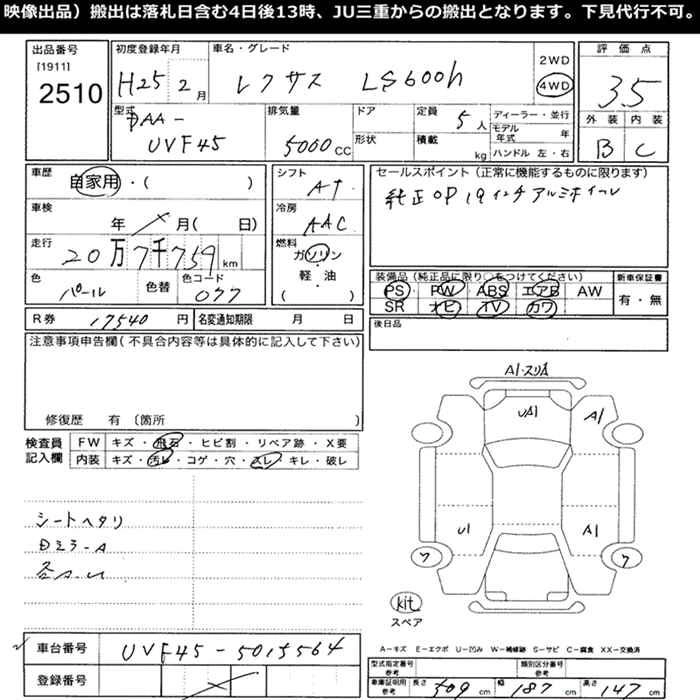 映像出品）搬出は落札日含む4日後13時、JU三重からの搬出となります。下見代行不可。
出品番号
[1911]
2510
初度登録年月
H25 2 月
車名・グレード
レクサス LS600h
2WD
4WD
評価点
3.5
外装 内装
B C
型式
DAA-
UVF45
排気量
5000 CC
ドア
形状
定員
5 人
積載
kg
ディーラー・並行
モデル年式 年
ハンドル 左・右
車歴
自家用・( )
車検
年 月( 日)
走行
20万7千759 km
色
パール
色替
色コード
077
シフト
AT
冷房
AAC
燃料
ガソリン
軽・油
( )
セールスポイント（正常に機能するものに限ります）
純正OP 19インチアルミホイル
装備品（純正品に限り○をつけてください）
PS PW ABS エアB AW
SR ナビ TV カワ
新車保証書
有・無
R券 17540 円
名変通知期限 月 日
後日品
注意事項申告欄（不具合内容等は具体的に記入して下さい）
修復歴 有〔箇所 〕
検査員
記入欄
FW キズ・飛石・ヒビ割・リペア跡・X要
内装 キズ・汚レ・コゲ・穴・スレ・キレ・破レ
シートヘタリ
Dミラ-A
各A-U
A1・スリA
UA1
A1
U1
A1
ワ
ワ
kit
スペア
車台番号 UVF45-5015564
登録番号
A-キズ E-エクボ U-凹み W-補修跡 S-サビ C-腐食 XX-交換済
型式指定番号
類別区分番号
車庫証明用
参考
長さ 509 cm 幅 187 cm 高さ 147 cm